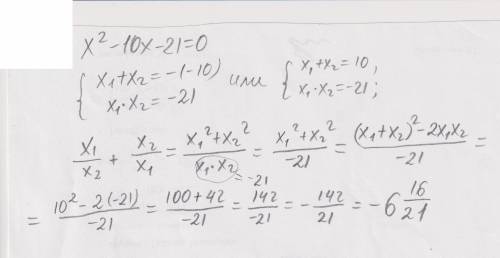 x² - 10x - 21 = 0
{ x₁ + x₂ = -(-10) или { x₁ + x₂ = 10;
x₁ · x₂ = -21 x₁ · x₂ = -21;
x₁/x₂ + x₂/x₁ = (x₁² + x₂²)/(x₁ · x₂) = (x₁² + x₂²)/-21 = ((x₁ + x₂)² - 2x₁x₂)/-21 =
= -21
= (10² - 2(-21))/-21 = (100 + 42)/-21 = 142/-21 = - 142/21 = -6 16/21